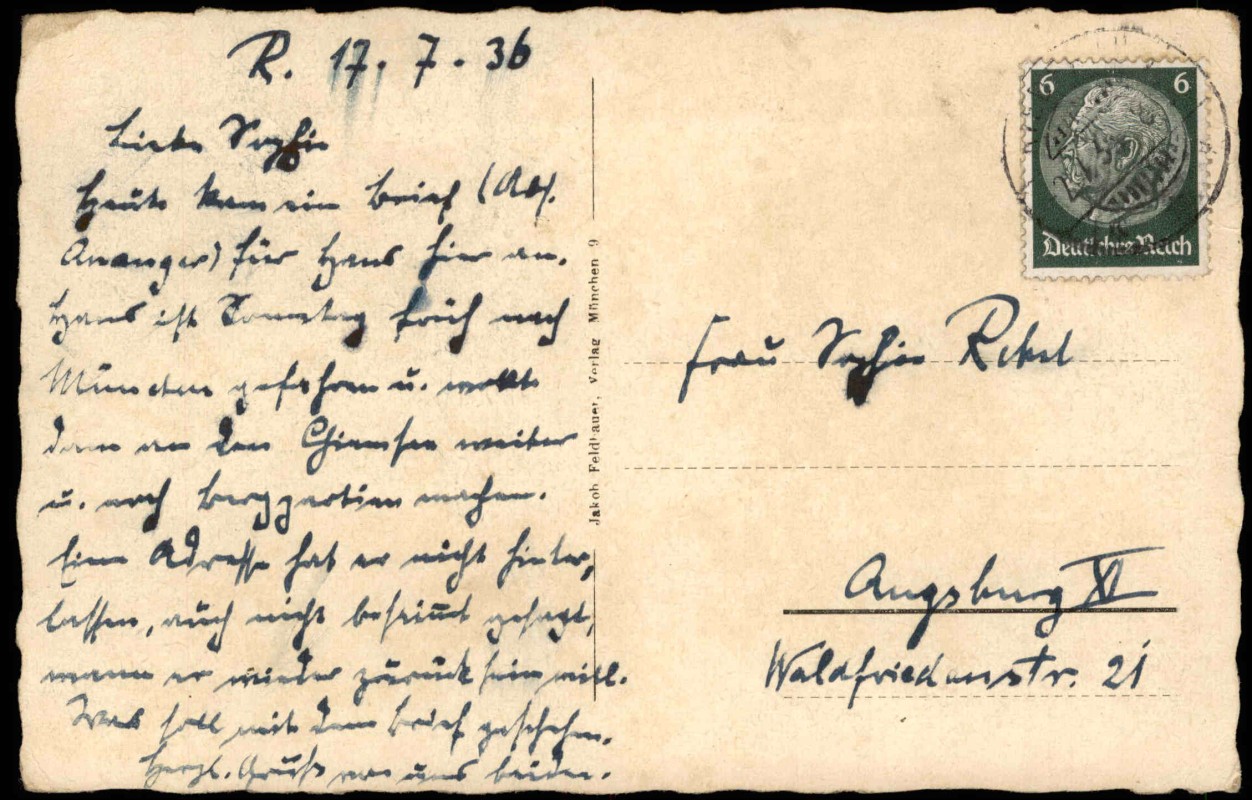 R. 17. 7. 36
Liebe Sophie
Heute kam ein Brief (Abs.
Ananger) für Hans hier an.
Hans ist Sonntag früh nach
München gefahren u. wollte
dann an den Chiemsee weiter
u. noch Bergpartien machen.
Eine Adresse hat er nicht hinter,
lassen, auch nicht bestimmt gesagt,
wann er wieder zurück sein will.
Was soll mit dem Brief geschehen.
Herzl. Gruß von uns beiden.
Jakob Feldbauer, Verlag München 9
6 6
Deutsches Reich
Frau Sophie
Augsburg XI
Waldfriedenstr. 21